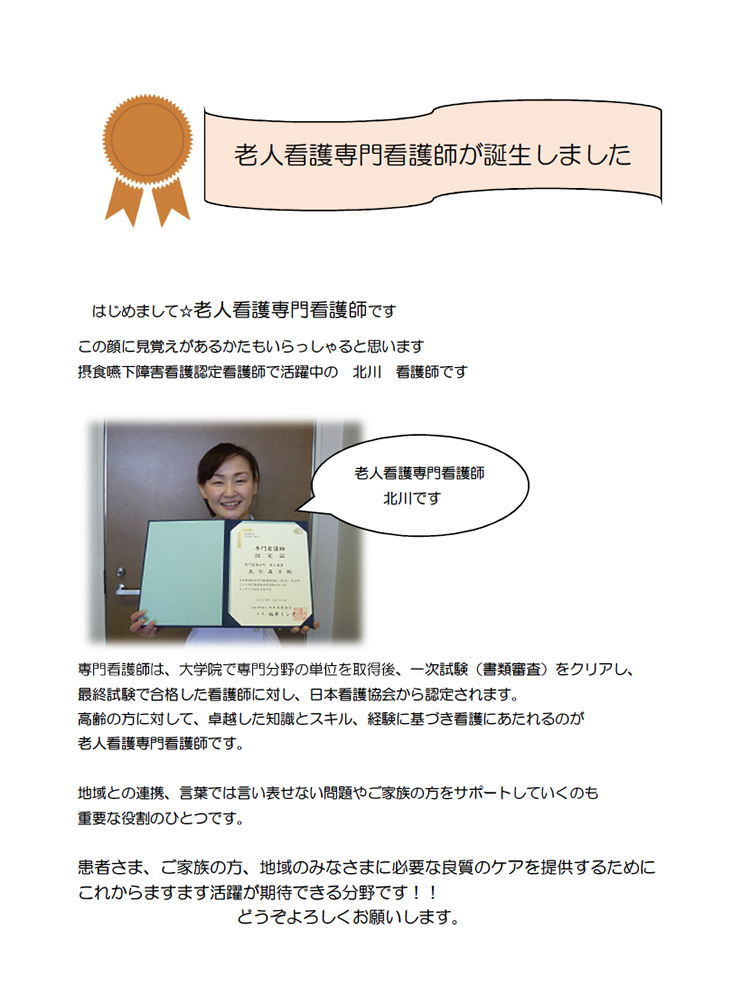 老人看護専門看護師が誕生しました
はじめまして☆老人看護専門看護師です
この顔に見覚えがあるかたもいらっしゃると思います
摂食嚥下障害看護認定看護師で活躍中の　北川　看護師です
老人看護専門看護師
北川です
専門看護師
認定証
専門看護師は、大学院で専門分野の単位を取得後、一次試験（書類審査）をクリアし、
最終試験で合格した看護師に対し、日本看護協会から認定されます。
高齢の方に対して、卓越した知識とスキル、経験に基づき看護にあたれるのが
老人看護専門看護師です。
地域との連携、言葉では言い表せない問題やご家族の方をサポートしていくのも
重要な役割のひとつです。
患者さま、ご家族の方、地域のみなさまに必要な良質のケアを提供するために
これからますます活躍が期待できる分野です！！
どうぞよろしくお願いします。